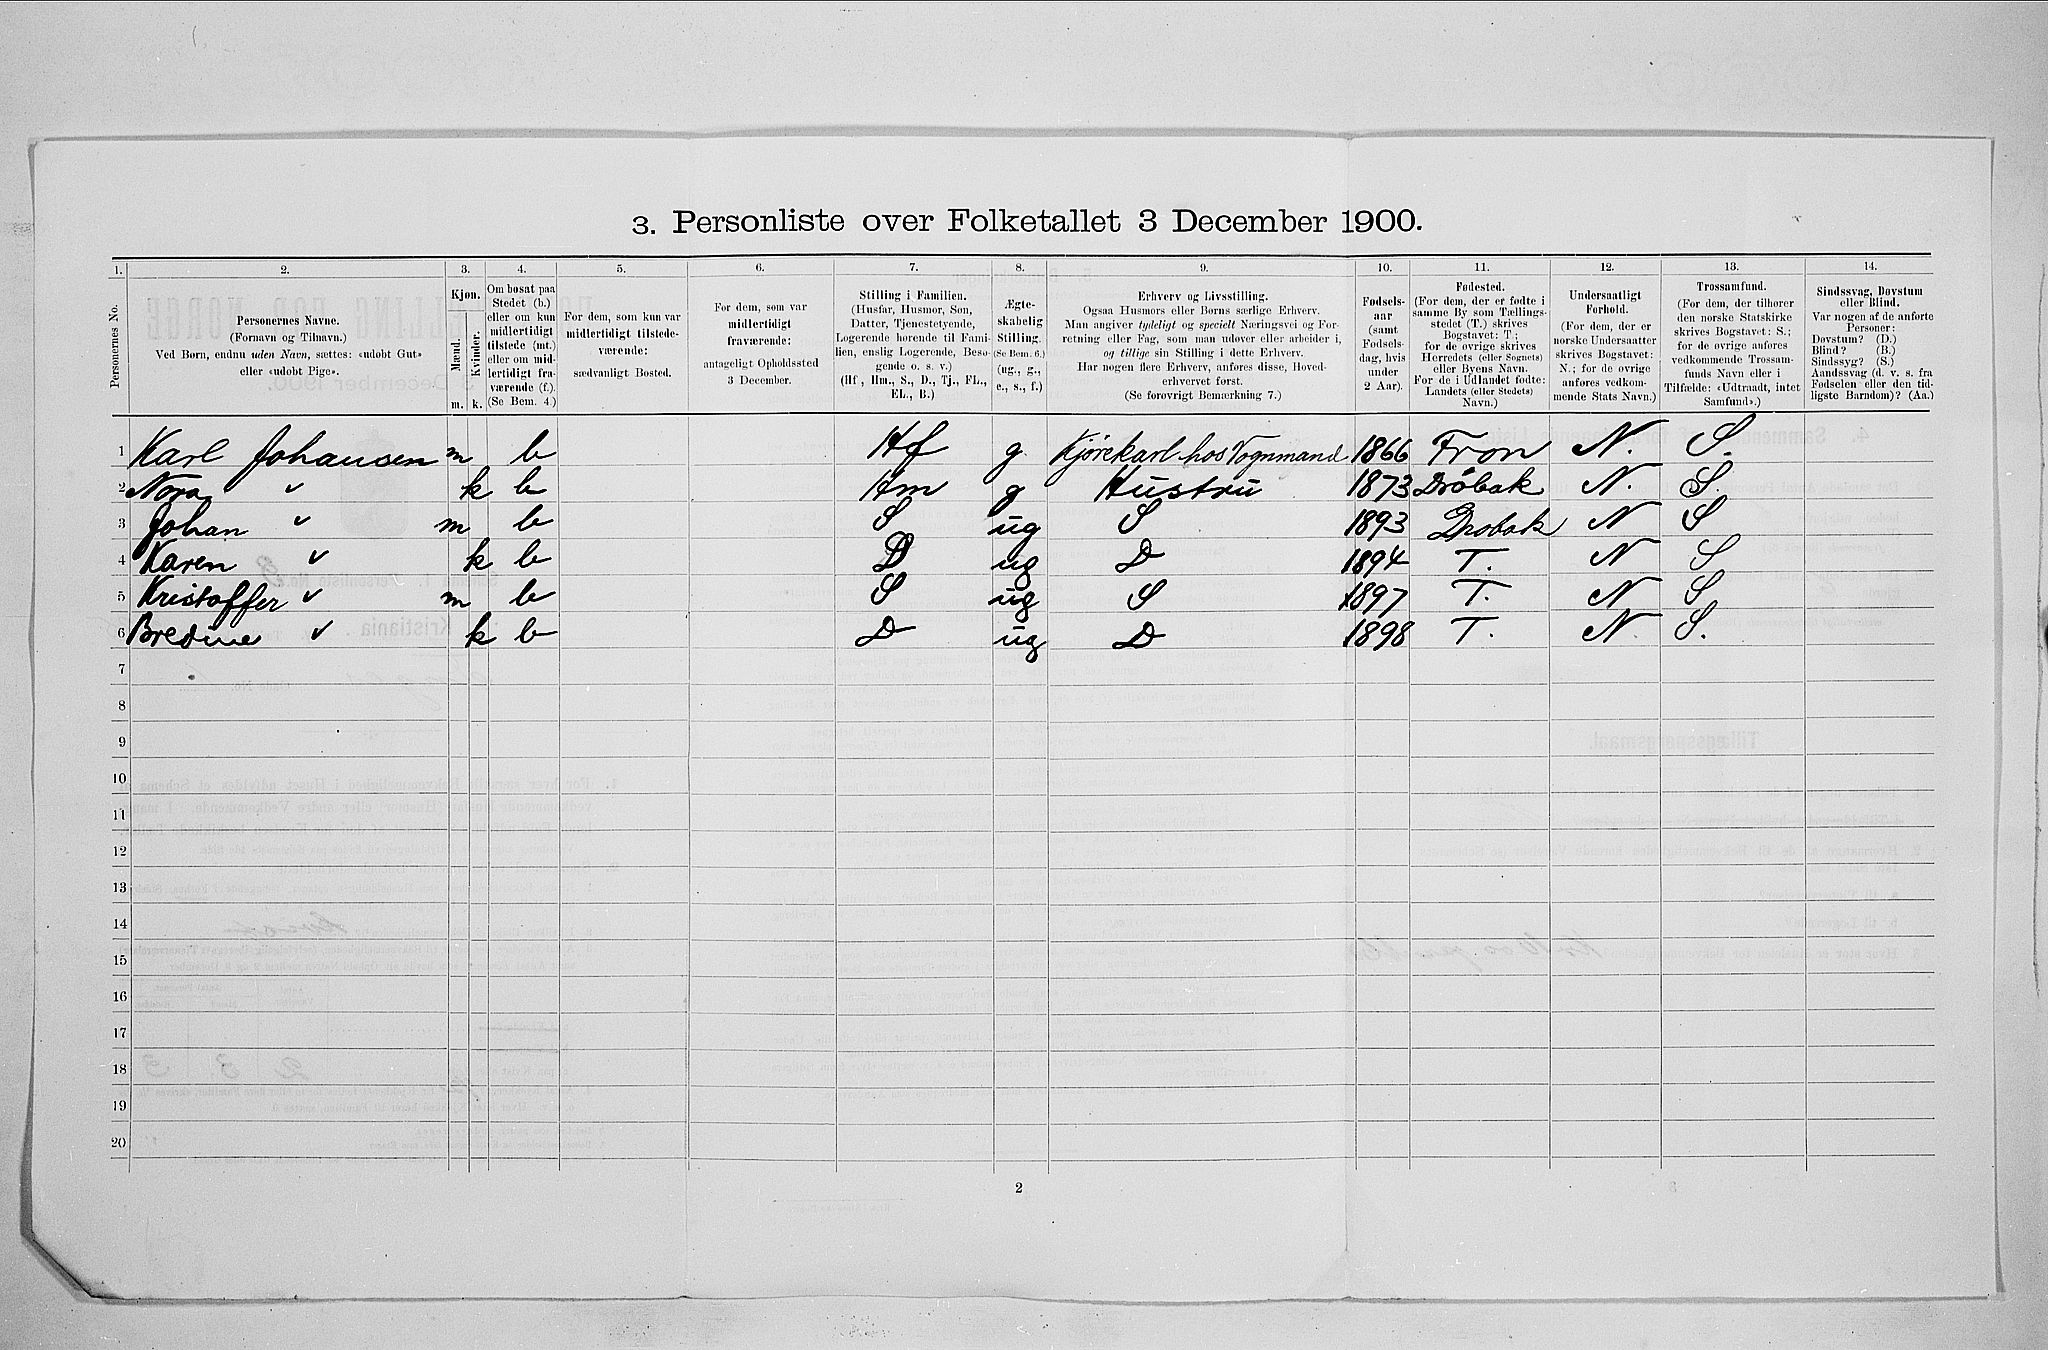 3. Personliste over Folketallet 3 December 1900.
1. 2. 3. 4. 5. 6. 7. 8. 9. 10. 11. 12. 13. 14.
Personernes No.
Personernes Navne.
(Fornavn og Tilnavn.)
Ved Børn, endnu uden Navn, sættes: «udøbt Gut»
eller «udøbt Pige».
Kjøn.
Mænd.
Kvinder.
m. k.
Om bosat paa
Stedet (b.)
eller om kun
midlertidigt
tilstede (mt.)
eller om mid-
lertidigt fra-
værende (f.).
(Se Bem. 4.)
For dem, som kun var
midlertidigt tilstede-
værende:
sædvanligt Bosted.
For dem, som var
midlertidigt
fraværende:
antageligt Opholdssted
3 December.
Stilling i Familien.
(Husfar, Husmor, Søn,
Datter, Tjenestetyende,
Logerende hørende til Fami-
lien, enslig Logerende, Besø-
gende o. s. v.)
(Hf., Hm., S., D., Tj., FL.,
EL., B.)
Ægte-
skabelig
Stilling.
(Se Bem. 6.)
(ug., g.,
e., s., f.)
Erhverv og Livsstilling.
Ogsaa Husmors eller Børns særlige Erhverv.
Man angiver tydeligt og specielt Næringsvei og For-
retning eller Fag, som man udøver eller arbeider i,
og tillige sin Stilling i dette Erhverv.
Har nogen flere Erhverv, anføres disse, Hoved-
erhvervet først.
(Se forøvrigt Bemærkning 7.)
Fødsels-
aar
(samt
Fødsels-
dag, hvis
under
2 Aar).
Fødested.
(For dem, der er fødte i
samme By som Tællings-
stedet (T.) skrives
Bogstavet: T.;
for de øvrige skrives
Herredets (eller Sognets)
eller Byens Navn.
For de i Udlandet fødte:
Landets (eller Stedets)
Navn.)
Undersaatligt
Forhold.
(For dem, der er
norske Undersaatter
skrives Bogstavet:
N.; for de øvrige
anføres vedkom-
mende Stats Navn.)
Trossamfund.
(For dem, der tilhører
den norske Statskirke
skrives Bogstavet: S.;
for de øvrige anføres
vedkommende Trossam-
funds Navn eller i
Tilfælde: «Udtraadt, intet
Samfund».)
Sindssvag, Døvstum
eller Blind.
Var nogen af de anførte
Personer:
Døvstum? (D.)
Blind? (B.)
Sindssyg? (S.)
Aandssvag (d. v. s. fra
Fødselen eller den tid-
ligste Barndom)? (Aa.)
1 Karl Johansen m b Hf g Kjørekarl hos Vognmand 1866 Fron N. S.
2 Nora " k b Hm g Hustru 1873 Drøbak N. S.
3 Johan " m b S ug S 1893 Drøbak N S
4 Karen " k b D ug D 1894 T. N S
5 Kristoffer " m b S ug S 1897 T. N S
6 Bredine " k b D ug D 1898 T. N. S.
7
8
9
10
11
12
13
14
15
16
17
18
19
20
2